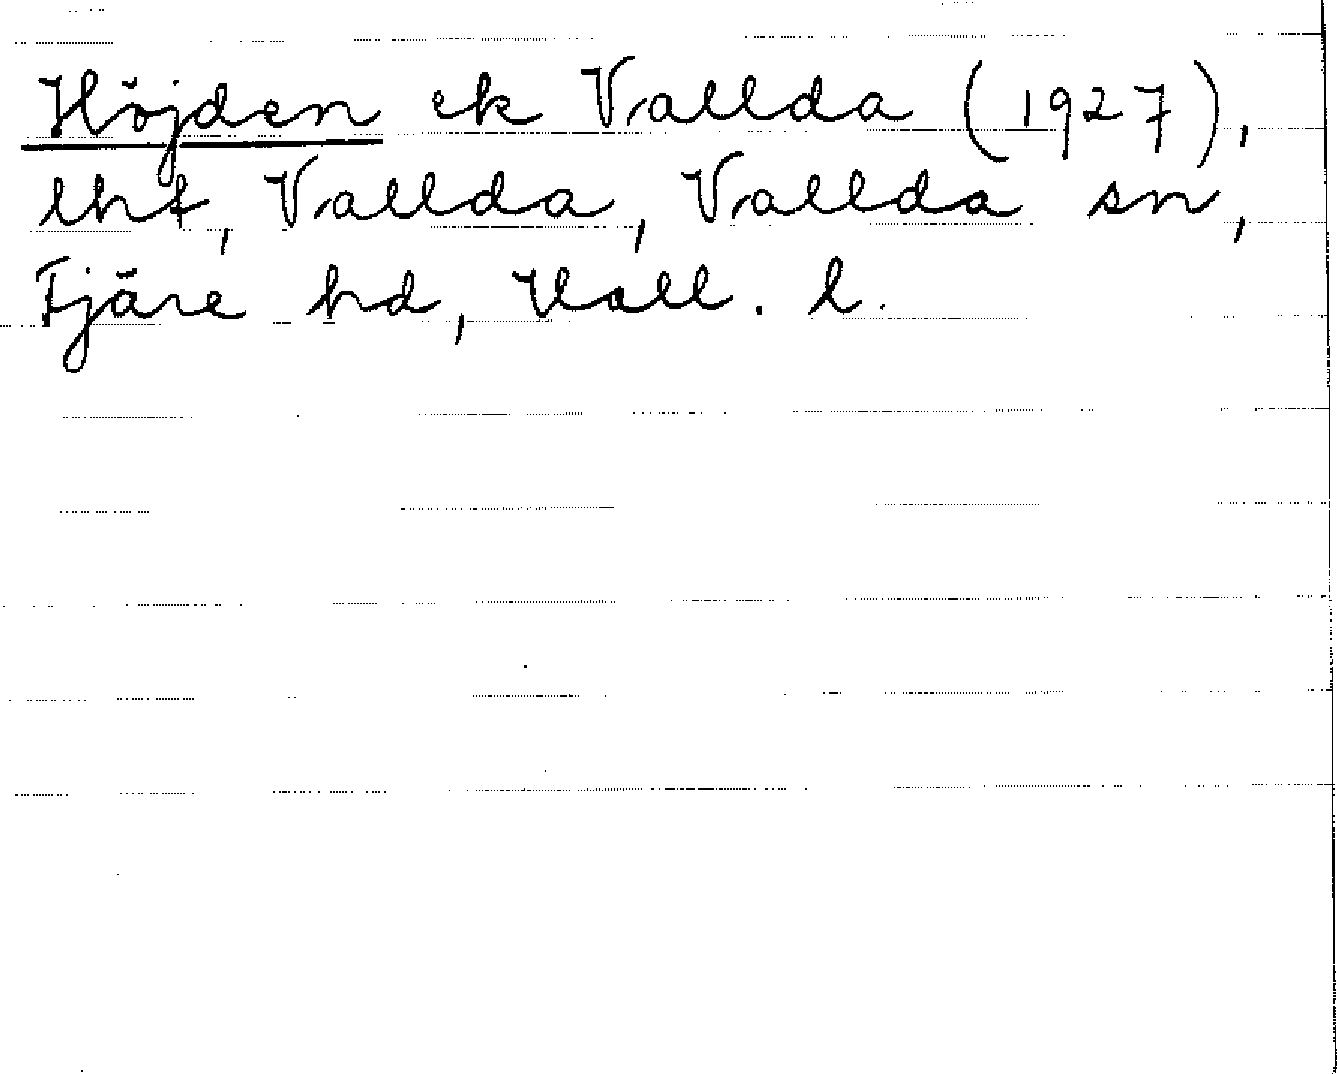 Höjden ek Vallda (1927),
lht, Vallda, Vallda sn,
Fjäre hd, Hall. l.